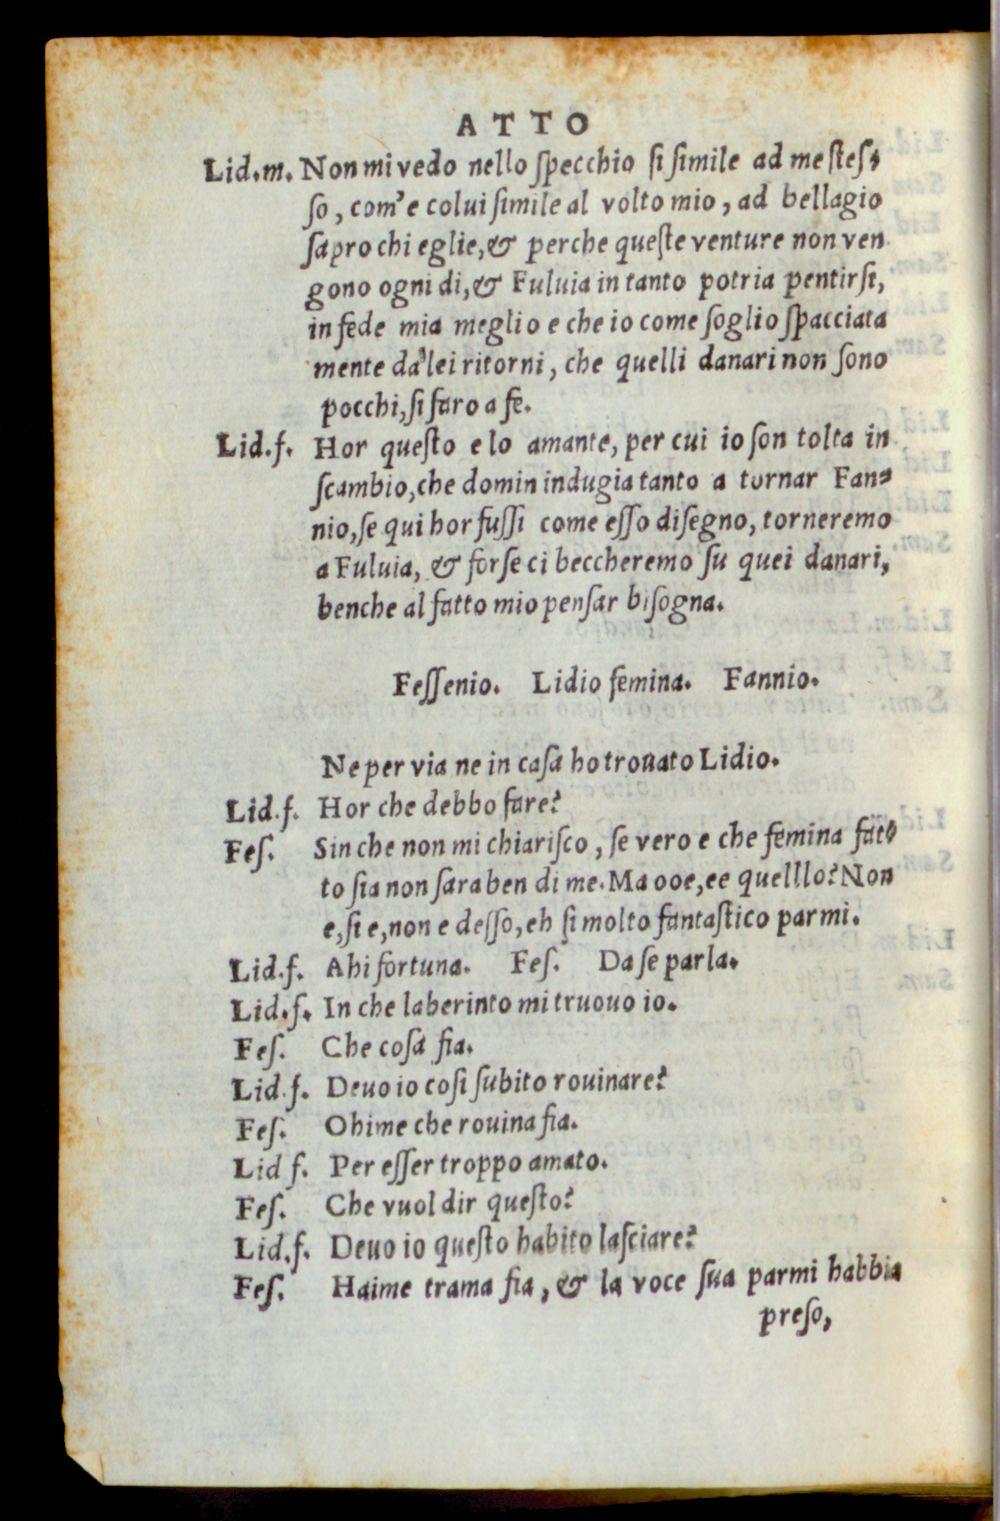 ATTO
Lid.m. Non mi vedo nello specchio si simile ad me stes-
so, com'e colui simile al volto mio, ad bellagio
sapro chi eglie, & perche queste venture non ven
gono ogni di, & Fuluia in tanto potria pentirsi,
in fede mia meglio e che io come soglio spacciata
mente da'lei ritorni, che quelli danari non sono
pocchi, si faro a fe.
Lid.f. Hor questo e lo amante, per cui io son tolta in
scambio, che domin indugia tanto a tornar Fan-
nio, se qui hor fussi come esso disegno, torneremo
a Fuluia, & forse ci beccheremo su quei danari,
benche al fatto mio pensar bisogna.
Fessenio. Lidio femina. Fannio.
Ne per via ne in casa ho trouato Lidio.
Lid.f. Hor che debbo fare?
Fes. Sin che non mi chiarisco, se vero e che femina fat-
to sia non sara ben di me. Ma ooe, ee quelllo? Non
e, si e, non e desso, eh si molto fantastico parmi.
Lid.f. Ahi fortuna. Fes. Da se parla.
Lid.f. In che laberinto mi truouo io.
Fes. Che cosa fia.
Lid.f. Deuo io cosi subito rouinare?
Fes. Ohime che rouina fia.
Lid f. Per esser troppo amato.
Fes. Che vuol dir questo?
Lid.f. Deuo io questo habito lasciare?
Fes. Haime trama fia, & la voce sua parmi habbia
preso,